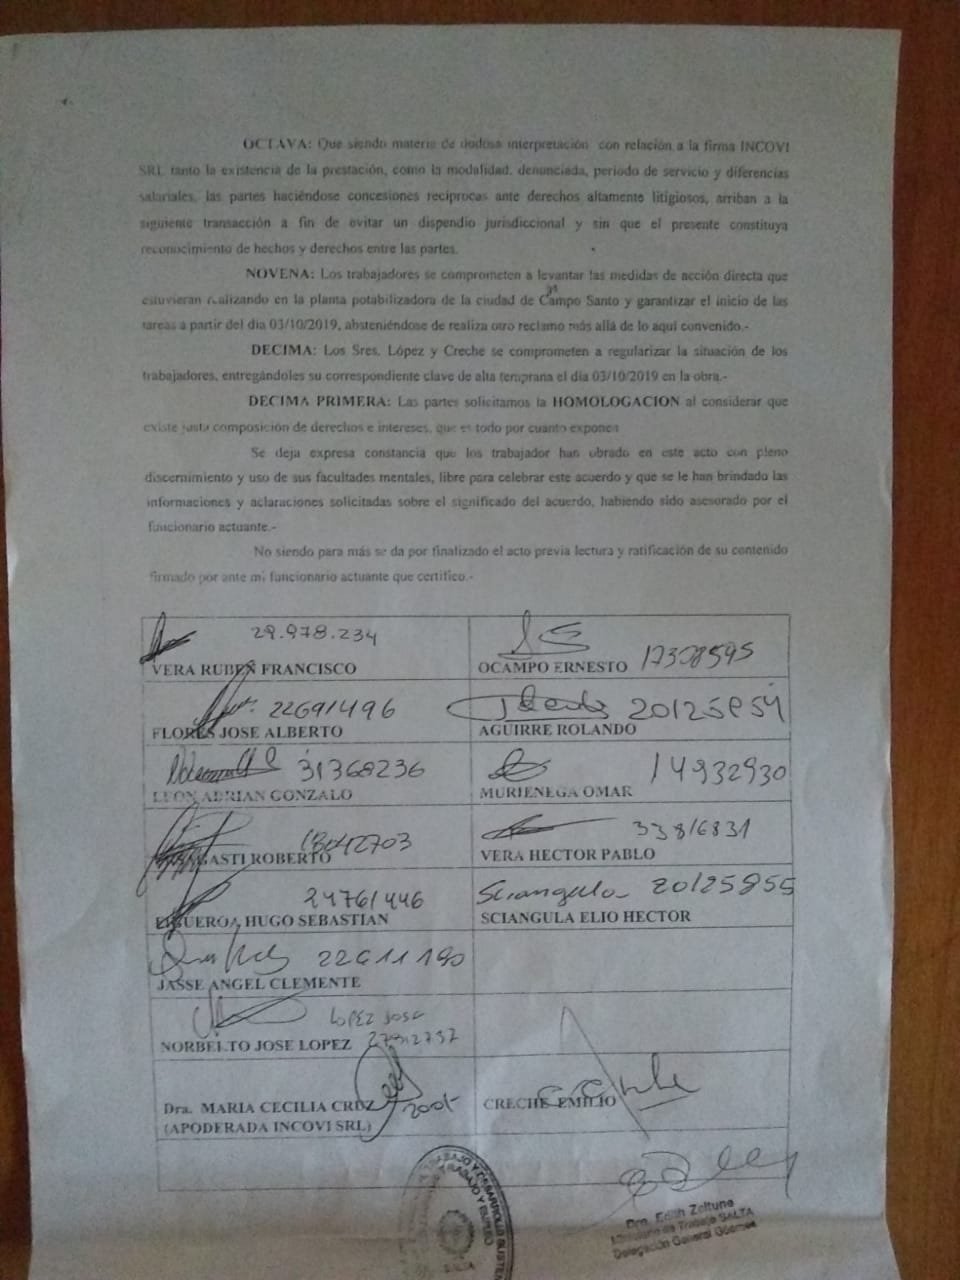 OCTAVA: Que siendo materia de dudosa interpretación con relación a la firma INCOVI
SRL tanto la existencia de la prestación, como la modalidad, denunciada, periodo de servicio y diferencias
salariales, las partes haciéndose concesiones reciprocas ante derechos altamente litigiosos, arriban a la
siguiente transacción a fin de evitar un dispendio jurisdiccional y sin que el presente constituya
reconocimiento de hechos y derechos entre las partes.
NOVENA: Los trabajadores se comprometen a levantar las medidas de acción directa que
estuvieran realizando en la planta potabilizadora de la ciudad de Campo Santo y garantizar el inicio de las
tareas a partir del dia 03/10/2019, absteniéndose de realiza otro reclamo más allá de lo aquí convenido.-
DECIMA: Los Sres. López y Creche se comprometen a regularizar la situación de los
trabajadores, entregándoles su correspondiente clave de alta temprana el dia 03/10/2019 en la obra.-
DECIMA PRIMERA: Las partes solicitamos la HOMOLOGACION al considerar que
existe justa composición de derechos e intereses, que es todo por cuanto exponen
Se deja expresa constancia que los trabajador han obrado en este acto con pleno
discernimiento y uso de sus facultades mentales, libre para celebrar este acuerdo y que se le han brindado las
informaciones y aclaraciones solicitadas sobre el significado del acuerdo, habiendo sido asesorado por el
funcionario actuante.-
No siendo para más se da por finalizado el acto previa lectura y ratificación de su contenido
firmado por ante mi funcionario actuante que certifico.-
29.978.234
VERA RUBEN FRANCISCO
OCAMPO ERNESTO 17308595
22691496
FLORES JOSE ALBERTO
20125954
AGUIRRE ROLANDO
31368236
LEON ADRIAN GONZALO
14932930
MURIENEGA OMAR
18042703
ROBERTO
33816831
VERA HECTOR PABLO
24761446
FIGUEROA HUGO SEBASTIAN
Sciangula 20125855
SCIANGULA ELIO HECTOR
22611190
JASSE ANGEL CLEMENTE
LOPEZ JOSE
NORBELTO JOSE LOPEZ
Dra. MARIA CECILIA CRUZ
(APODERADA INCOVI SRL)
2005
CRECHE EMILIO
TRABAJO Y DESARROLLO SUSTEN
TRABAJO Y EMPLEO
SALTA
Dra. Edith Zeltune
Ministerio de Trabajo SALTA
Delegación General Güemes